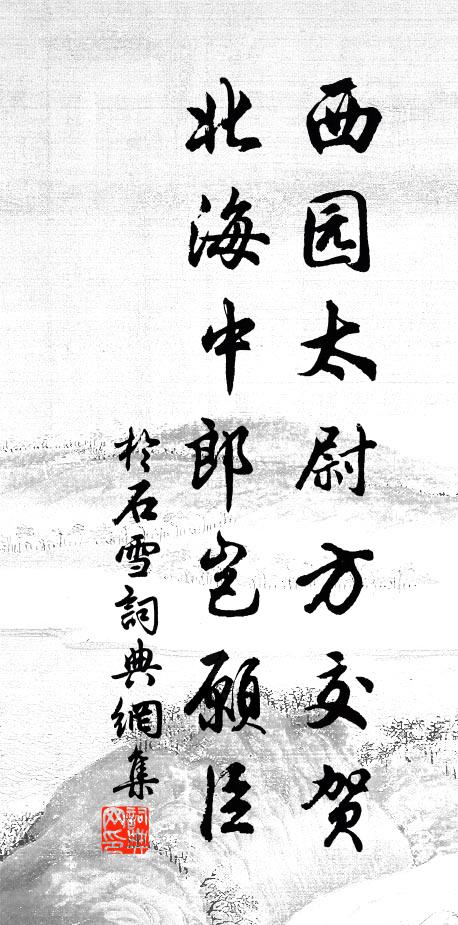 西园太尉方交贺
北海中郎岂愿臣
於石雪詞典網集